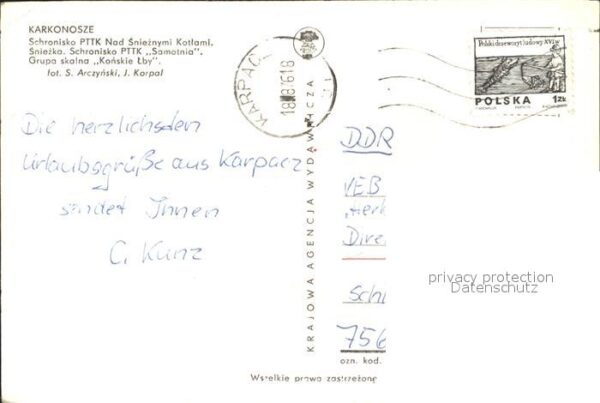 KARKONOSZE
Schronisko PTTK Nad Śnieżnymi Kotłami.
Śnieżka. Schronisko PTTK „Samotnia".
Grupa skalna „Końskie Łby".
fot. S. Arczyński, J. Korpal
KARPACZ
18.8.76.18
Polski drzeworyt ludowy XVI w.
POLSKA 1ZŁ
Die herzlichsden
Urlaubsgrüße aus Karpacz
sendet Ihnen
C. Kunz
KRAJOWA AGENCJA WYDAWNICZA
DDR
VEB
Dire
Schu
756
ozn. kod.
privacy protection
Datenschutz
Wszelkie prawa zastrzeżone